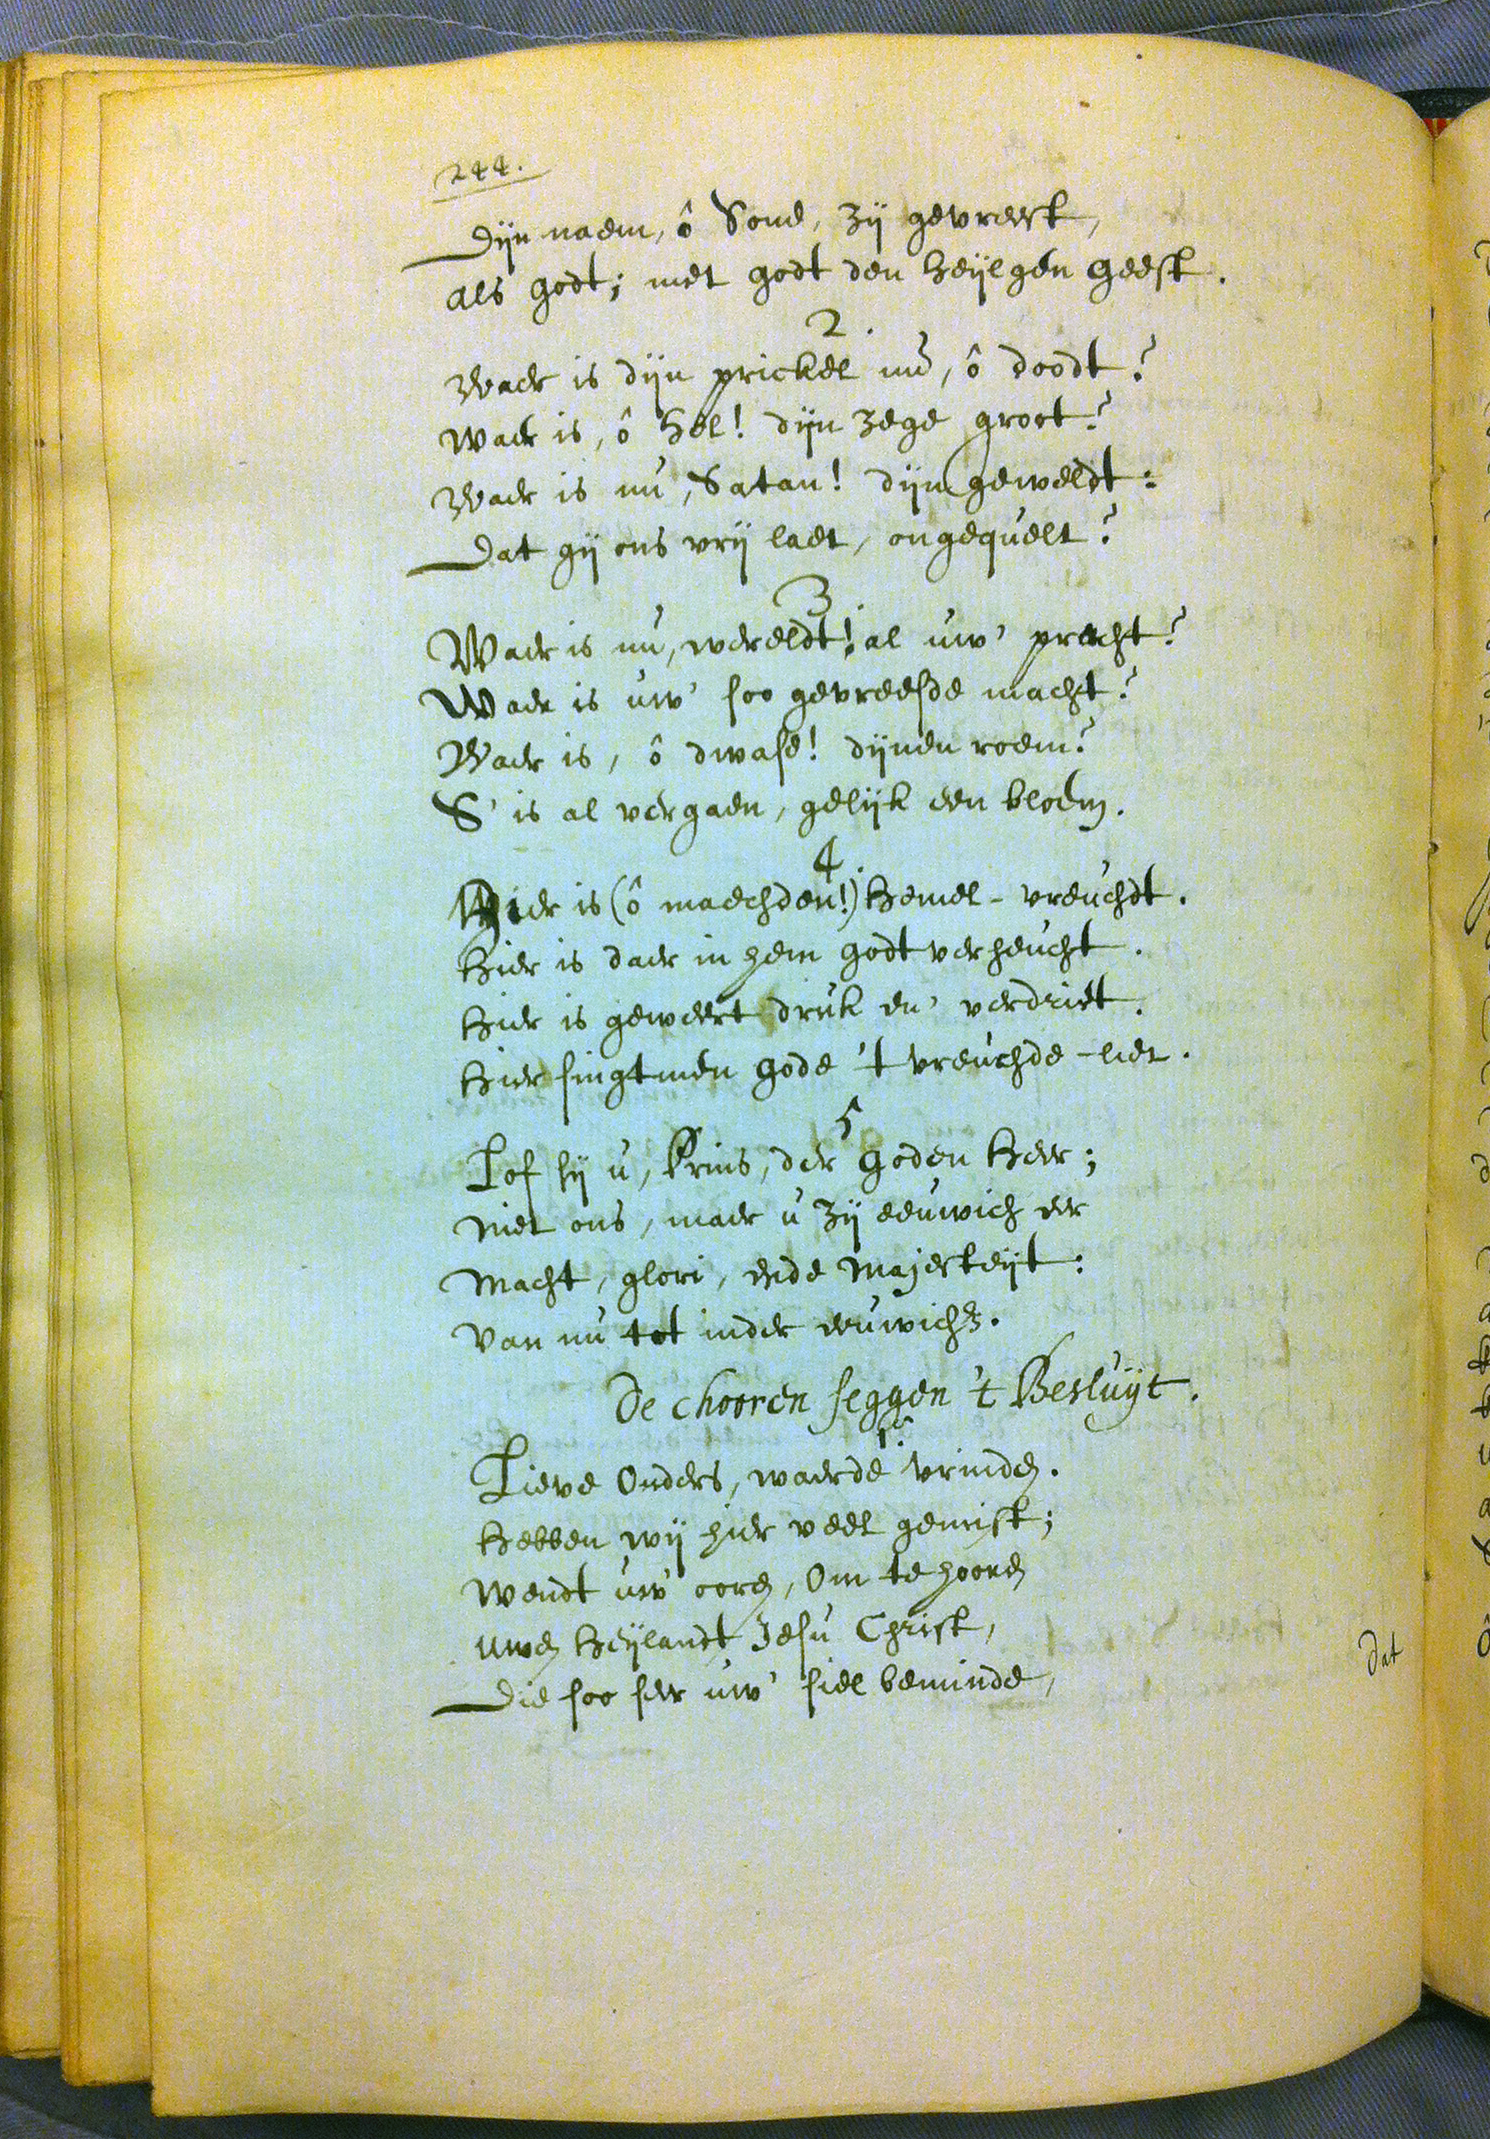 244.
Dijn naem, ô Sone, zij gevreest,
als godt; met godt den heijlgen geest.
2.
Waer is dijn prickel nu, ô doodt?
waer is, ô hel! dijn zege groot?
Waer is nu, Satan! dijn geweldt:
Dat gij ons vrij laet, ongequelt?
3.
Waer is nu, wereldt! al uw' pracht?
Waer is uw' soo gevreesde macht?
Waer is, ô dwase! dijnen roem?
S' is al vergaen, gelijk een bloem.
4.
Hier is (ô maechden!) hemel-vreuchdt.
Hier is daer in hem godt verheucht.
Hier is geweert druk en' verdriet.
Hier singtmen gode 't vreuchde-liet.
5
Lof sij u, Prins, der goden heer;
niet ons, maer u zij eeuwich eer
Macht, glori, ende majesteijt:
van nu tot inder eeuwicht.
De chooren seggen 't Besluijt.
1.
Lieve Ouders, waerde vrinden.
Hebben wij hier veel gemist;
wendt uw' ooren, Om te hooren
uwen heijlandt Jesu Christ,
Die soo seer uw' siel beminde,
dat